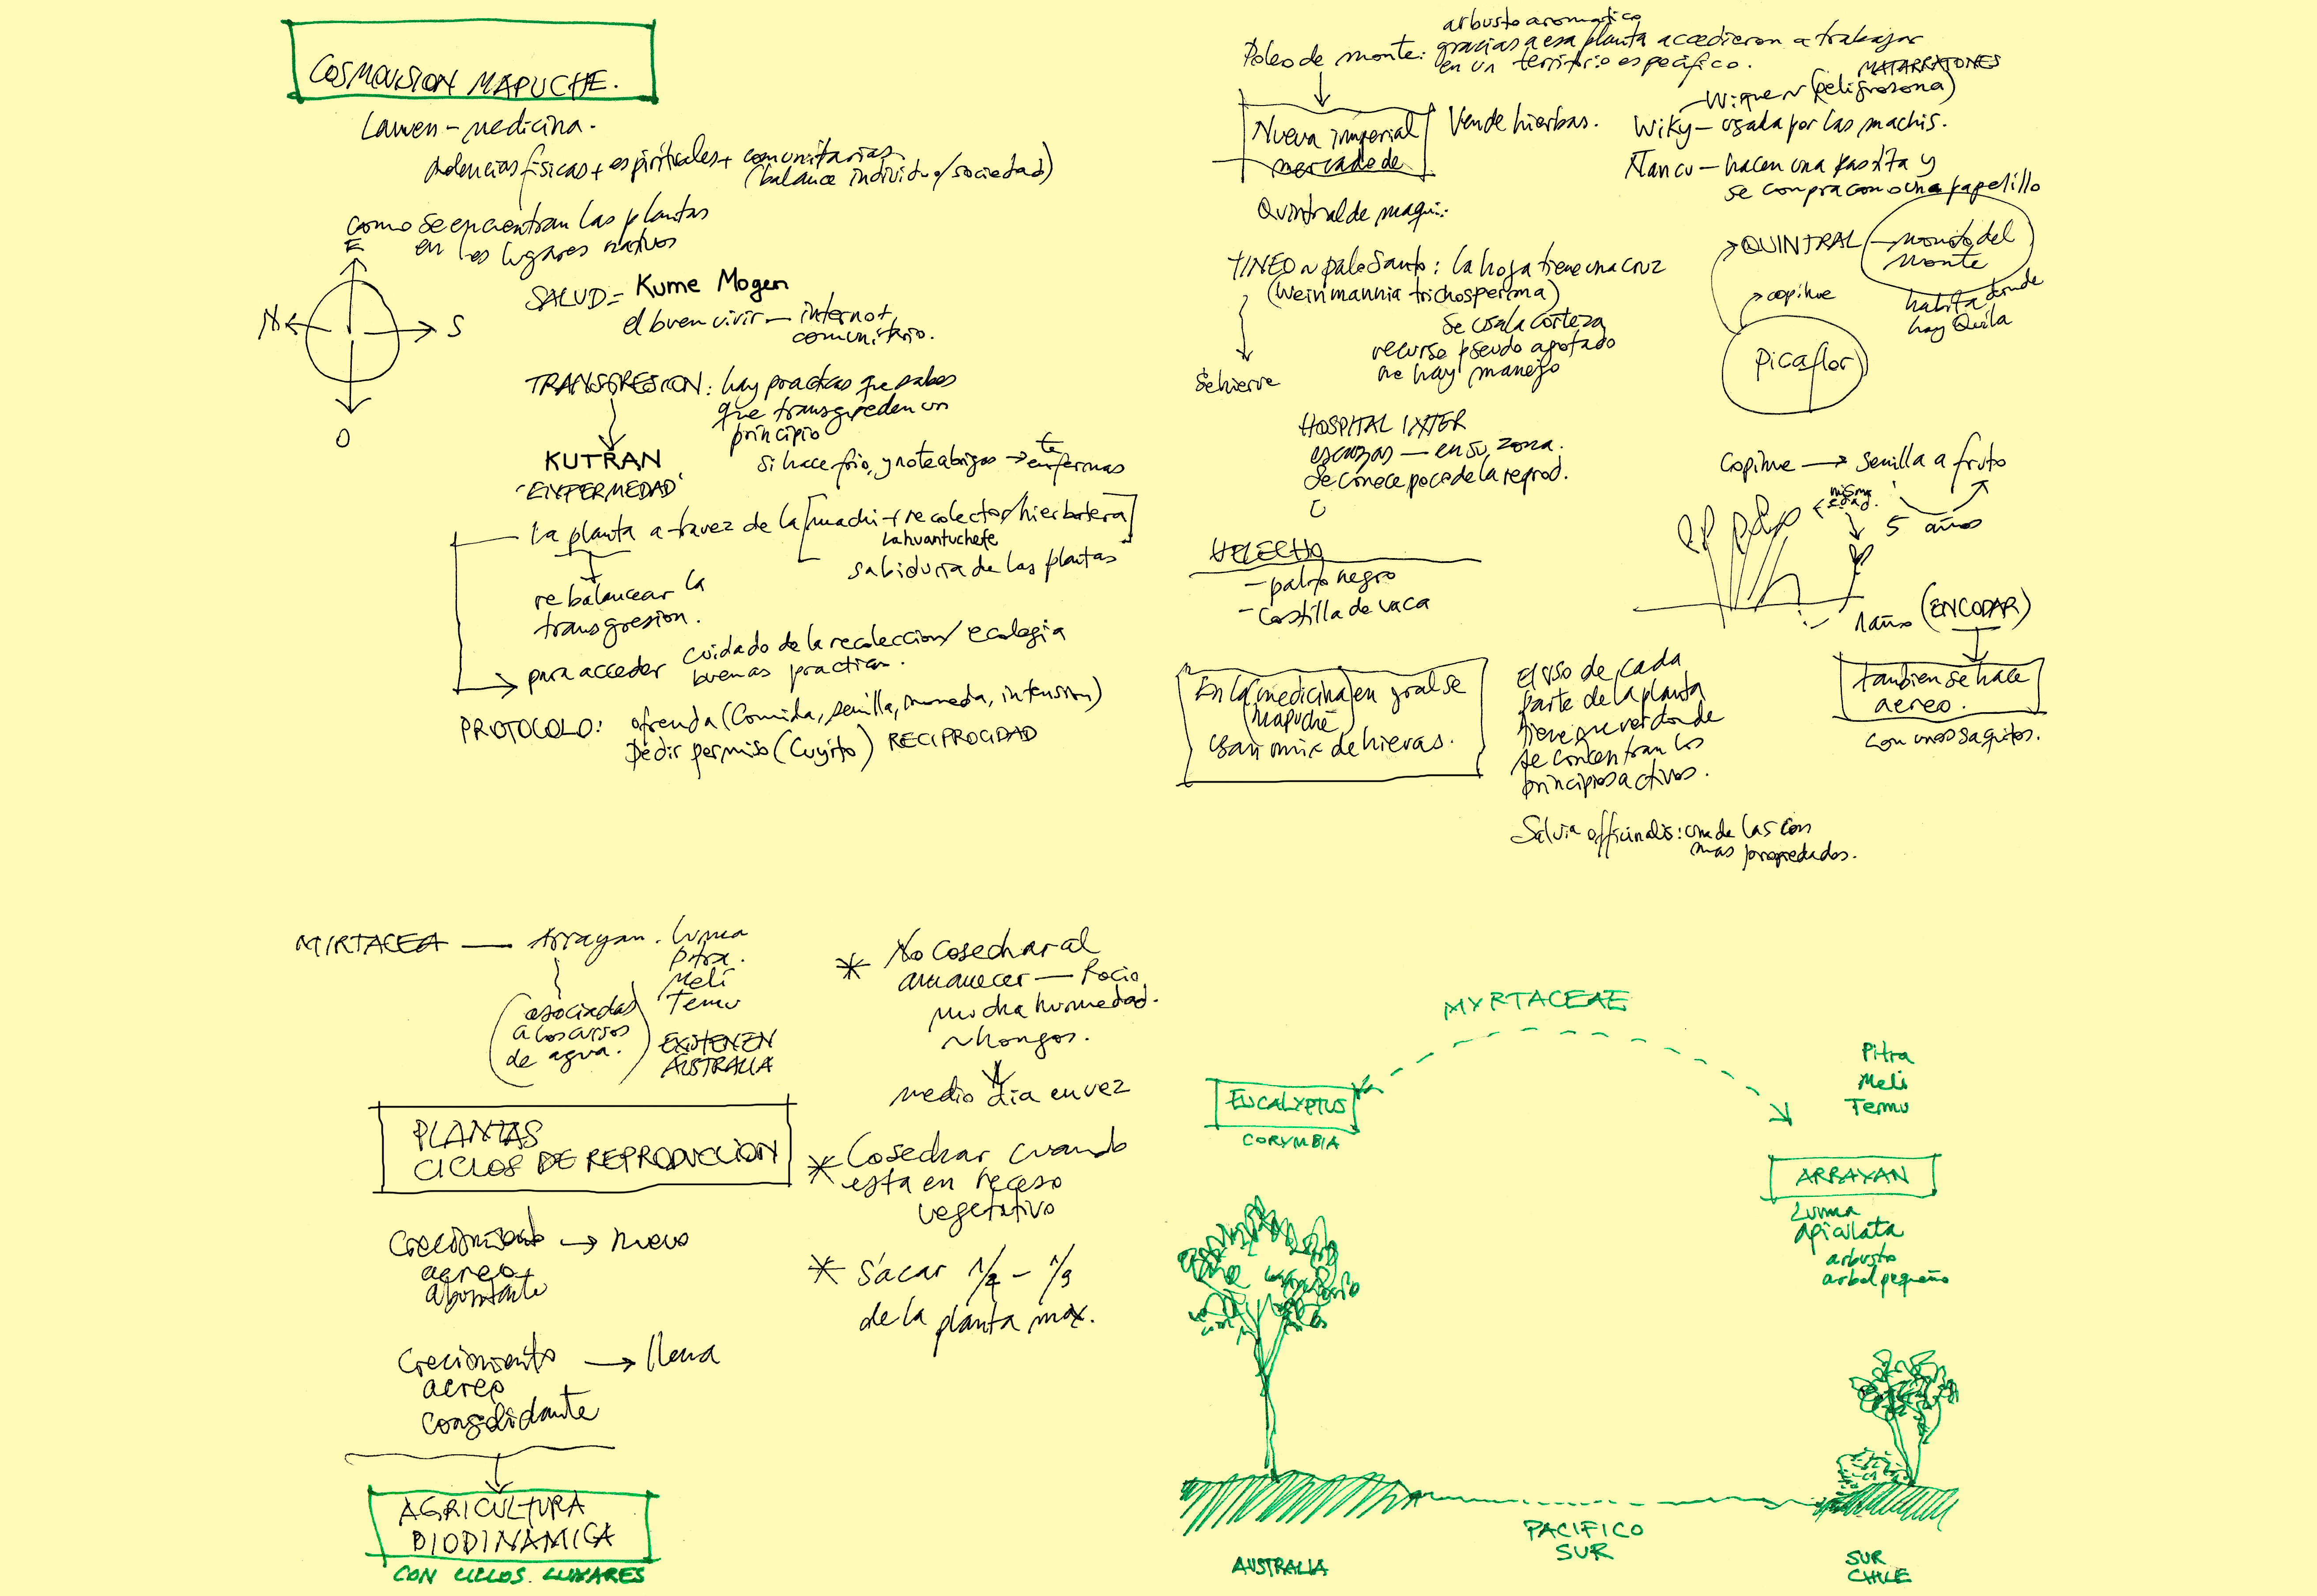 COSMOVISION MAPUCHE.
Lawen - medicina.
dolencias físicas + espirituales + comunitarias
(balance individuo/sociedad)
como se encuentran las plantas
en los lugares nativos
E
N
S
O
SALUD = Kume Mogen
el buen vivir — interno +
comunitario.
TRANSGRESION: hay practicas que sabes
que transgreden un
principio
KUTRAN
'ENFERMEDAD'
si hace frio, y no te abrigas → te enfermas
La planta a travez de la [machi + recolector/hierbatera]
Lahuantuchefe
sabiduria de las plantas
rebalancear la
transgresion.
para acceder cuidado de la recoleccion/ecologia
buenas practicas.
PROTOCOLO: ofrenda (comida, semilla, moneda, intension)
Pedir permiso (Cuyito) RECIPROCIDAD
Poleo de monte: arbusto aromatico
gracias a esa planta accedieron a trabajar
en un territorio especifico.
Nueva imperial
mercado de
Vende hierbas.
MATARRATONES
Wique ~ (peligrosona)
Wiky — usada por las machis.
Ñancu — hacen una pastita y
se compra como una papelillo
Quintral de maqui:
TINEO ~ palo Santo: la hoja tiene una cruz
(Weinmannia trichosperma)
Se usa la corteza
recurso pseudo agotado
no hay manejo
Se hierve
QUINTRAL — monito del
monte
habita donde
hay Quila
copihue
picaflor
HOSPITAL
escazas — en su zona.
Se conoce poco de la reprod.
Copihue → semilla a fruto
misma
edad.
5 años
1 año (ENCODAR)
tambien se hace
aereo.
con unos saquitos.
HELECHO
- palito negro
- Costilla de vaca
En la medicina en gral se
(mapuche)
usan mix de hieras.
El uso de cada
parte de la planta
tiene que ver donde
se concentran los
principios activos.
Salvia officinalis: una de las con
mas propiedades.
MIRTACEA — Arrayan. Luma
Pitra.
Meli
Temu
(asociadas
a los cursos
de agua.)
EXISTEN EN
AUSTRALIA
PLANTAS
CICLOS DE REPRODUCCION
Crecimiento → nueva
aereo +
abundante
Crecimiento → llena
aereo
consolidante
AGRICULTURA
BIODINAMICA
CON CICLOS LUNARES
* No cosechar al
amanecer — Rocio,
mucha humedad.
~ hongos.
medio dia en vez
* Cosechar cuando
esta en receso
vegetativo
* Sacar 1/2 - 1/3
de la planta max.
MYRTACEAE
EUCALYPTUS
CORYMBIA
Pitra
Meli
Temu
ARRAYAN
Luma
apiculata
arbusto
arbol pequeño
PACIFICO
SUR
AUSTRALIA
SUR
CHILE